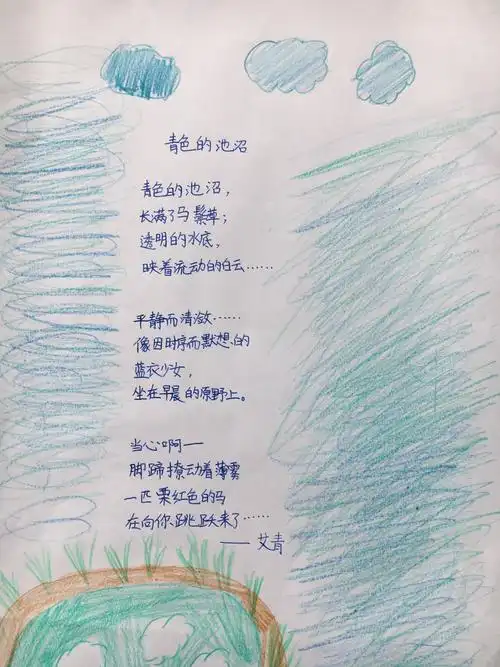 青色的池沼
青色的池沼，
长满了马鬃草；
透明的水底，
映着流动的白云……
平静而清澈……
像因时序而默想的
蓝衣少女，
坐在早晨的原野上。
当心啊——
脚蹄撩动着薄雾
一匹栗红色的马
在向你跳跃来了……
——艾青